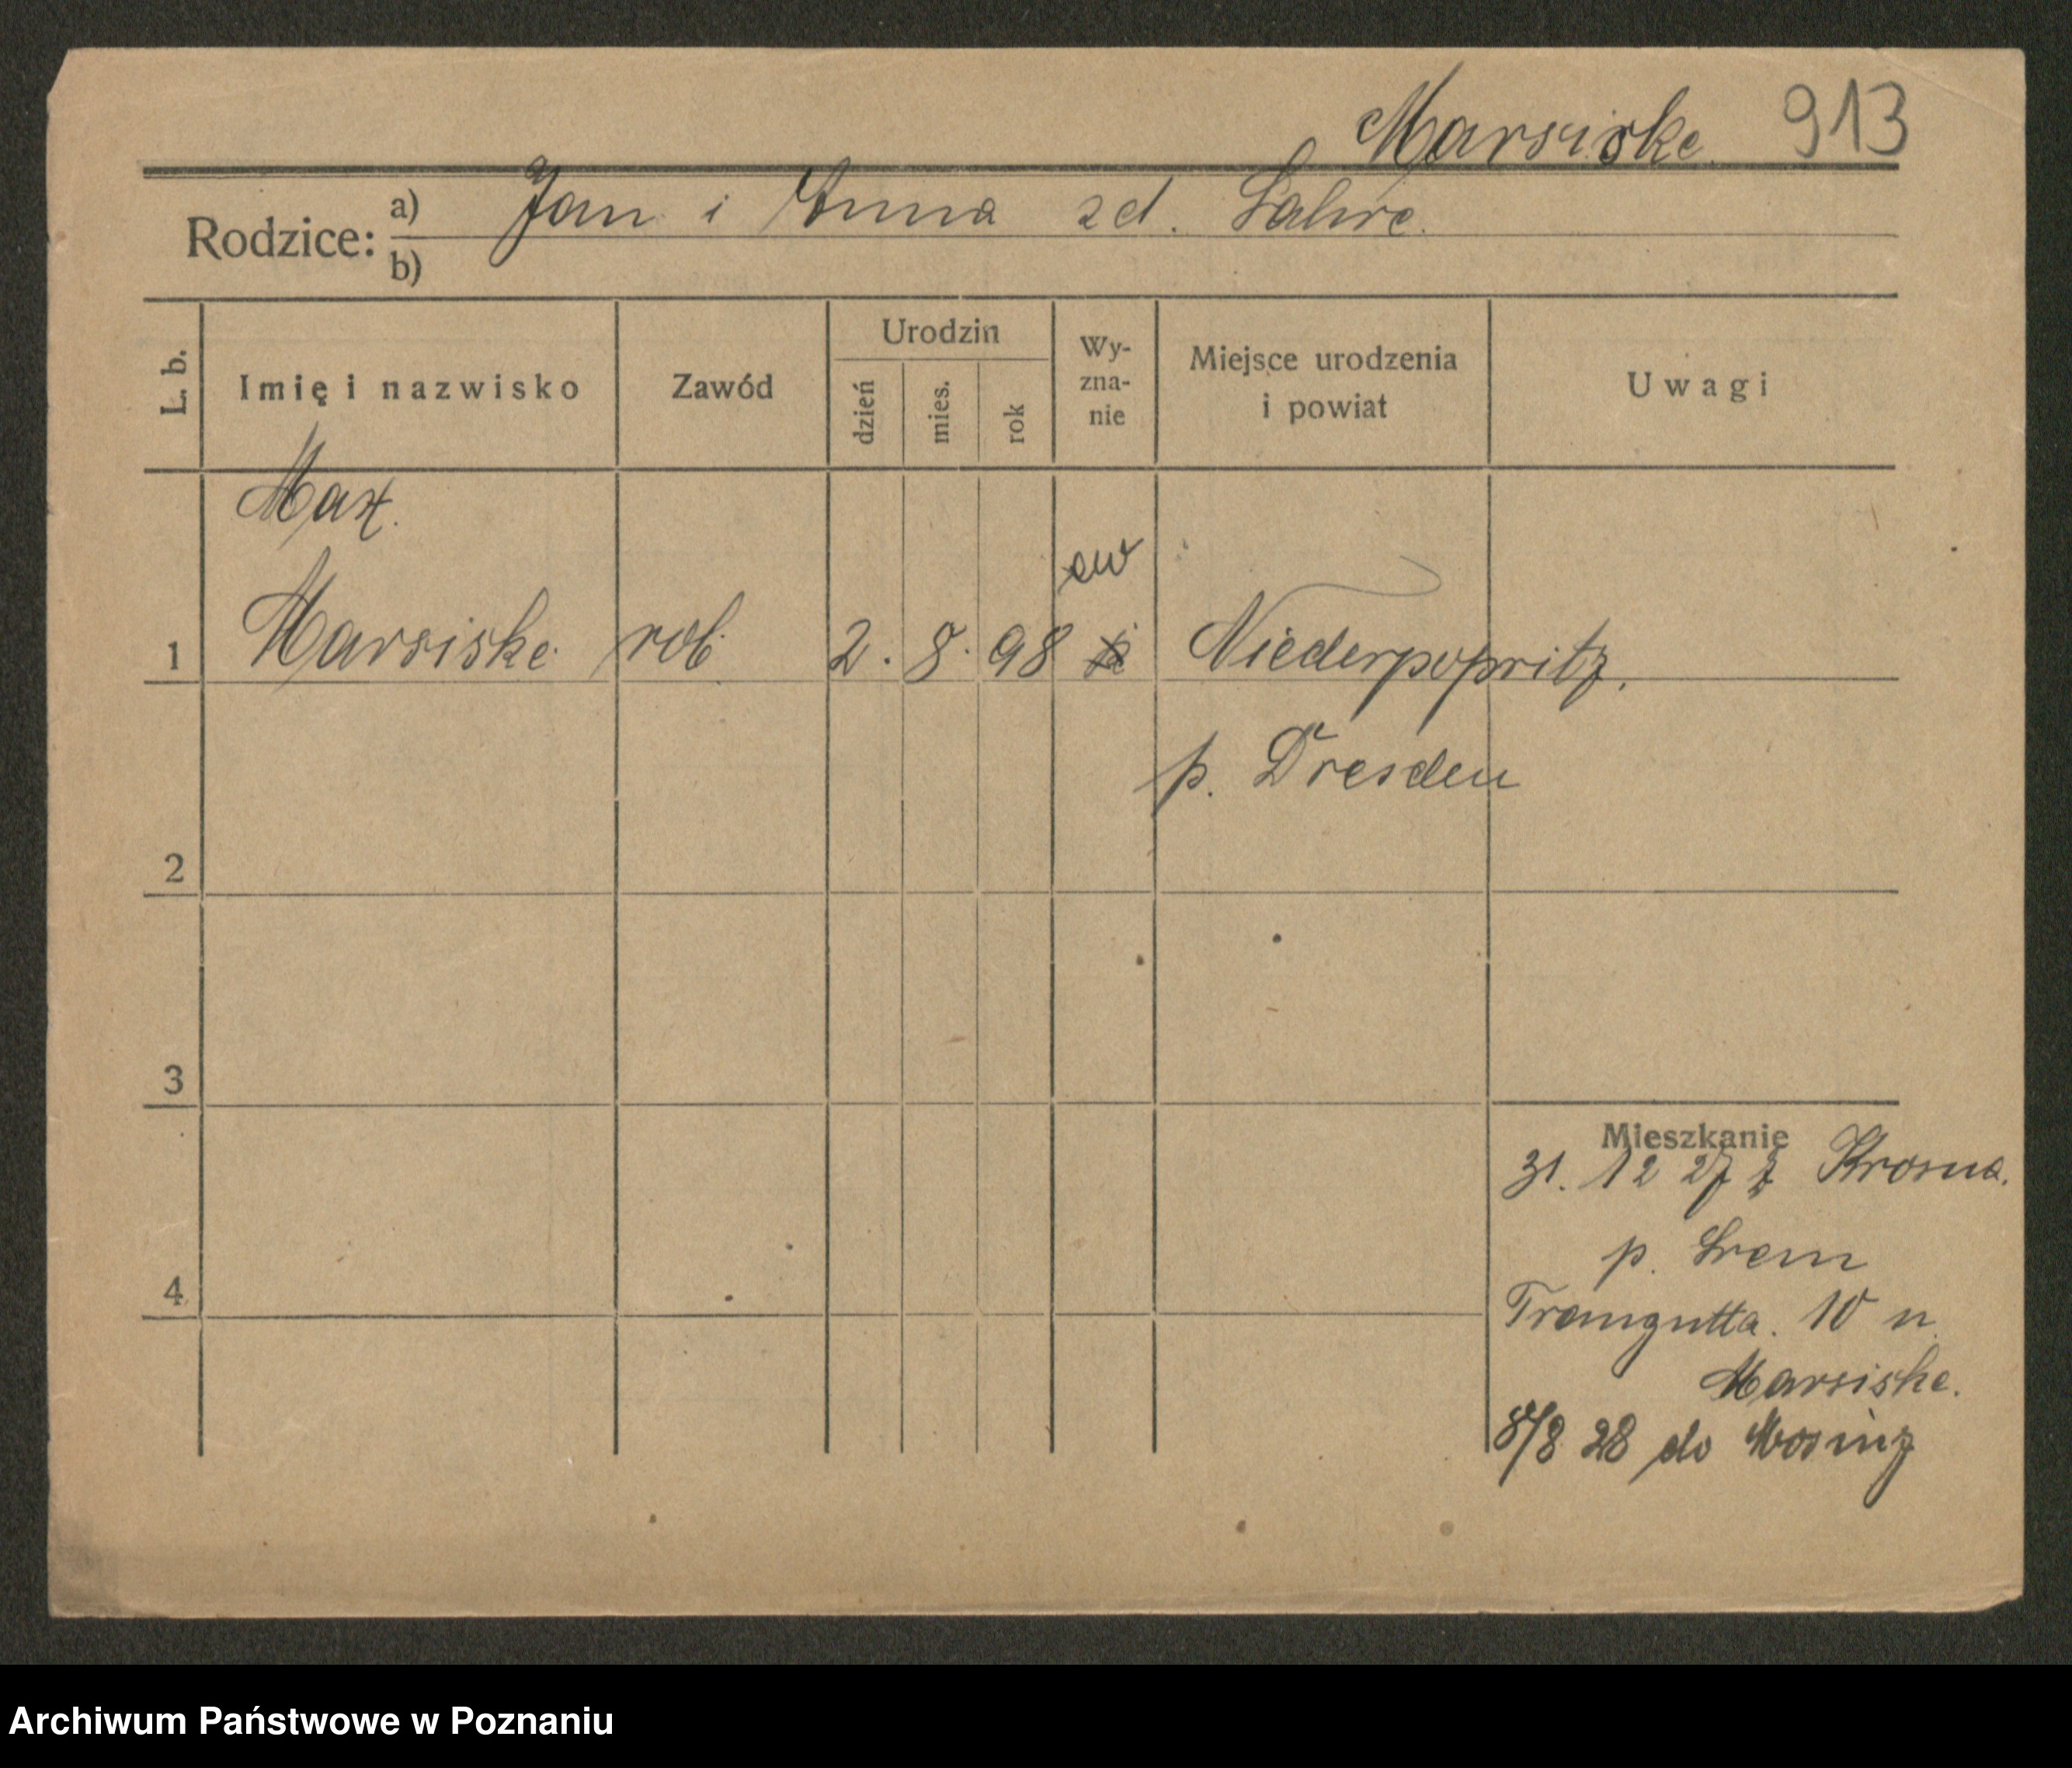 Marsiske. 913
Rodzice: a) Jan i Anna zd. Lahre.
b)
L. b.
Imię i nazwisko
Zawód
Urodzin
dzień
mies.
rok
Wy-
zna-
nie
Miejsce urodzenia
i powiat
Uwagi
Max.
ew
1 Marsiske rob. 2. 8. 98 Niederpopritz,
p. Dresden
2
3
4
Mieszkanie
31. 12 27 z Krosna.
p. Srem
Traugutta. 10 n.
Marsiske.
8/8 28 do Mosiny
Archiwum Państwowe w Poznaniu